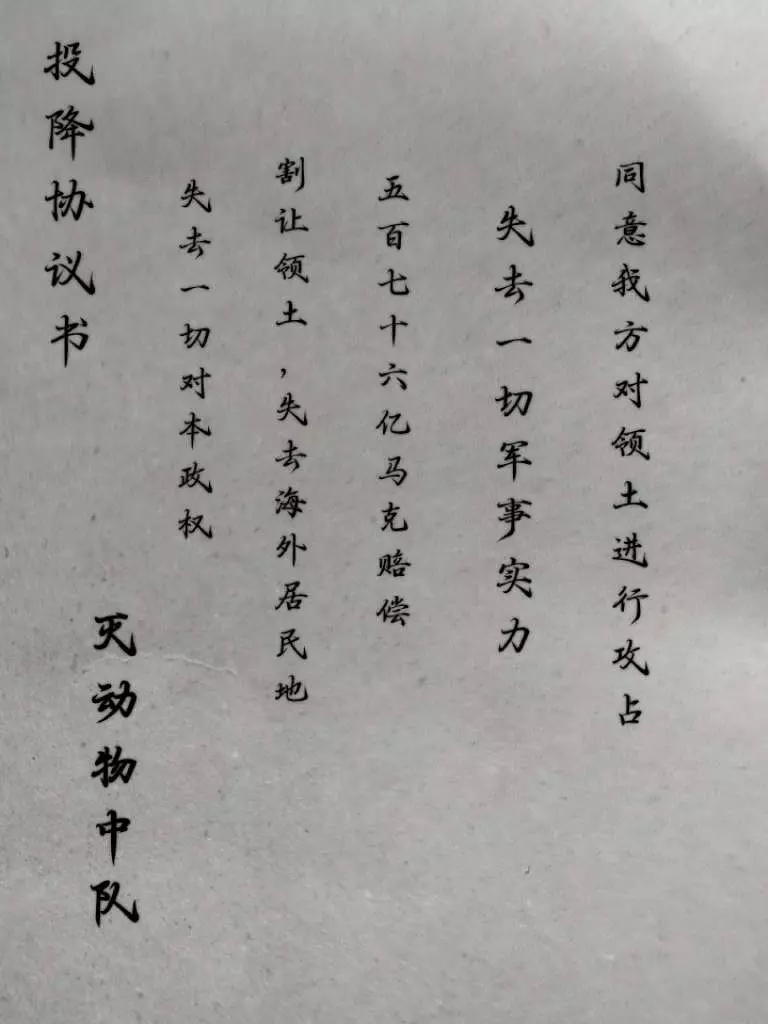 投降协议书
灭动物中队
失去一切对本政权
割让领土,失去海外居民地
五百七十六亿马克赔偿
失去一切军事实力
同意我方对领土进行攻占